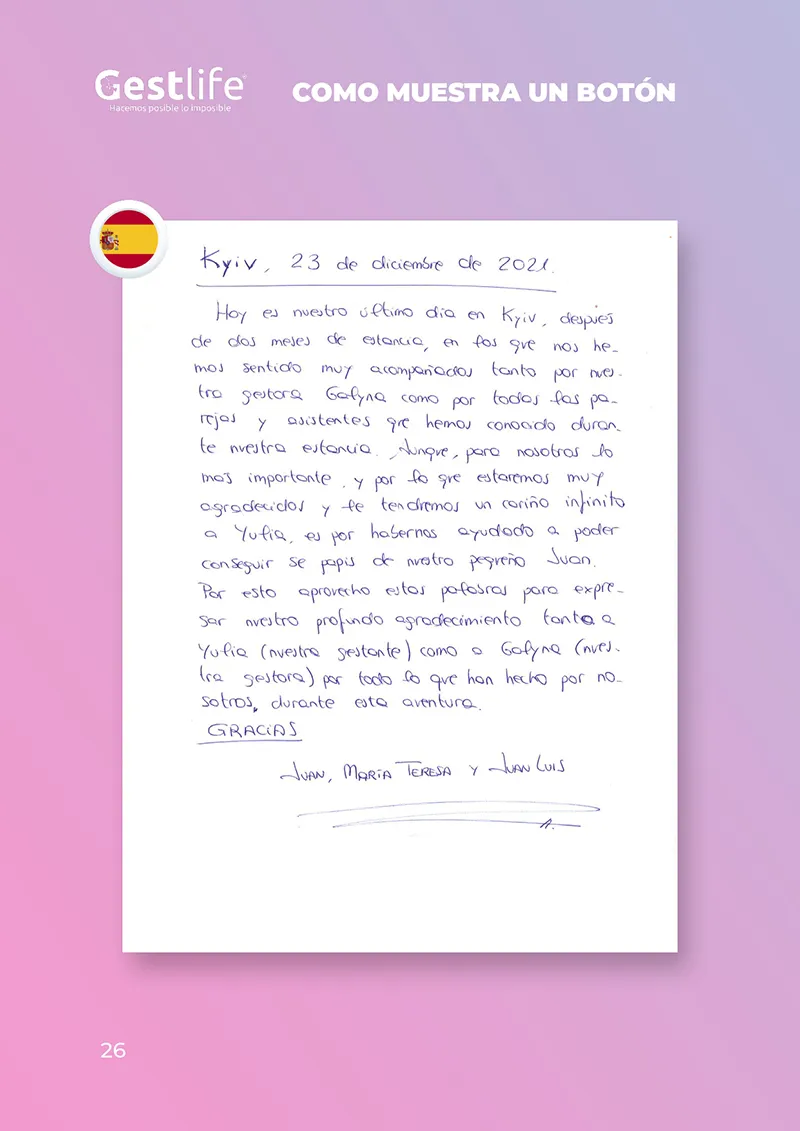 Gestlife
Hacemos posible lo imposible
COMO MUESTRA UN BOTÓN
Kyiv, 23 de diciembre de 2021.
Hoy es nuestro último dia en Kyiv, después
de dos meses de estancia, en los que nos he-
mos sentido muy acompañados tanto por nues-
tra gestora Galyna como por todas las pa-
rejas y asistentes que hemos conocido duran-
te nuestra estancia. Aunque, para nosotros lo
mas importante, y por lo que estaremos muy
agradecidos y le tendremos un cariño infinito
a Yulia, es por habernos ayudado a poder
conseguir se papis de nuestro pequeño Juan.
Por esto aprovecho estas palabras para expre-
sar nuestro profundo agradecimiento tanto a
Yulia (nuestra gestante) como a Galyna (nues-
tra gestora) por todo lo que han hecho por no-
sotros, durante esta aventura.
GRACIAS
JUAN, MARÍA TERESA Y JUAN LUIS
A.
26